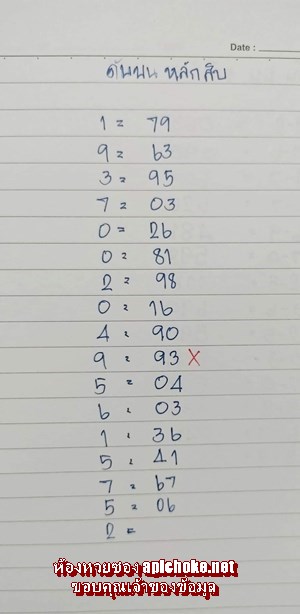 Date :
ดับบน หลักสิบ
1 = 79
9 = 63
3 = 95
7 = 03
0 = 26
0 = 81
2 = 98
0 = 16
4 = 90
9 = 93 X
5 = 04
6 = 03
1 = 36
5 = 41
7 = 67
5 = 06
2 =
ห้องหวยซอง apichoke.net
ขอบคุณเจ้าของข้อมูล